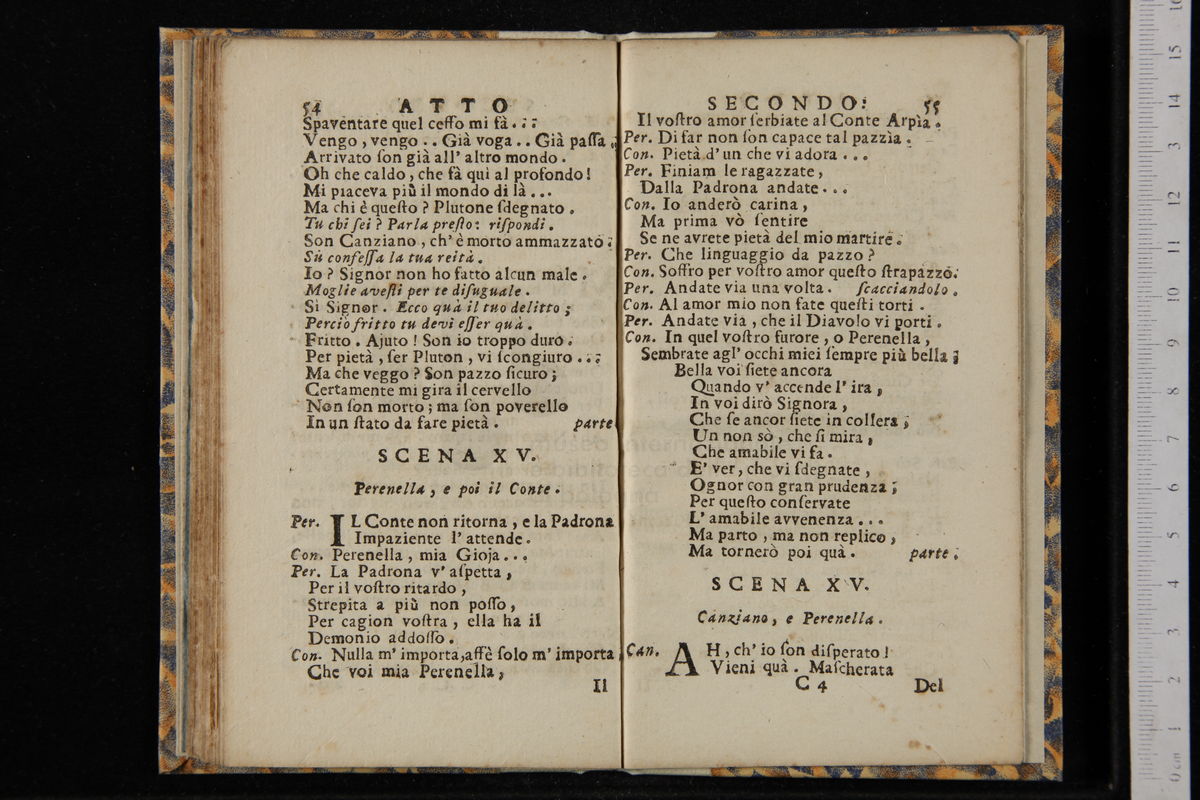 54 ATTO
Spaventare quel ceffo mi fà . . .
Vengo , vengo . . Già voga . . Già paſſa .
Arrivato ſon già all' altro mondo .
Oh che caldo , che fà quì al profondo !
Mi piaceva più il mondo di là . . .
Ma chi è queſto ? Plutone ſdegnato .
Tu chi ſei ? Parla preſto : riſpondi .
Son Canziano , ch' è morto ammazzato .
Sù confeſſa la tua reità .
Io ? Signor non ho fatto alcun male .
Moglie aveſti per te diſuguale .
Sì Signor . Ecco quà il tuo delitto ;
Perciò fritto tu devi eſſer quà .
Fritto . Ajuto ! Son io troppo duro .
Per pietà , ſer Pluton , vi ſcongiuro . . .
Ma che veggo ? Son pazzo ſicuro ;
Certamente mi gira il cervello
Non ſon morto ; ma ſon poverello
In un ſtato da fare pietà . parte
SCENA XV.
Perenella , e poi il Conte .
Per. IL Conte non ritorna , e la Padrona
Impaziente l' attende .
Con. Perenella , mia Gioja . . .
Per. La Padrona v' aſpetta ,
Per il voſtro ritardo ,
Strepita a più non poſſo ,
Per cagion voſtra , ella ha il
Demonio addoſſo .
Con. Nulla m' importa,affè ſolo m' importa
Che voi mia Perenella ,
Il
SECONDO. 55
Il voſtro amor ſerbiate al Conte Arpìa .
Per. Di far non ſon capace tal pazzìa .
Con. Pietà d' un che vi adora . . .
Per. Finiam le ragazzate ,
Dalla Padrona andate . . .
Con. Io anderò carina ,
Ma prima vò ſentire
Se ne avrete pietà del mio martire .
Per. Che linguaggio da pazzo ?
Con. Soffro per voſtro amor queſto ſtrapazzo.
Per. Andate via una volta . ſcacciandolo .
Con. Al amor mio non fate queſti torti .
Per. Andate via , che il Diavolo vi porti .
Con. In quel voſtro furore , o Perenella ,
Sembrate agl' occhi miei ſempre più bella ;
Bella voi ſiete ancora
Quando v' accende l' ira ,
In voi dirò Signora ,
Che ſe ancor ſiete in collera ;
Un non sò , che ſi mira ,
Che amabile vi fa .
E' ver , che vi ſdegnate ,
Ognor con gran prudenza ;
Per queſto conſervate
L' amabile avvenenza . . .
Ma parto , ma non replico ,
Ma tornerò poi quà . parte .
SCENA XV.
Canziano , e Perenella .
Can. AH , ch' io ſon diſperato !
Vieni quà . Maſcherata
C 4 Del